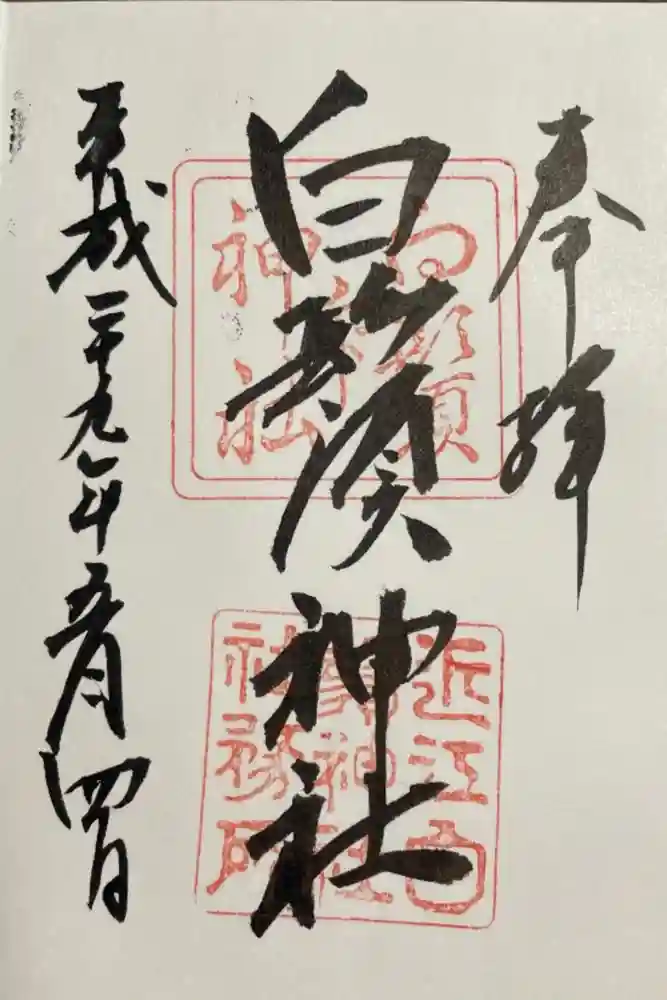 奉拝
白鬚神社
平成二十九年五月四日
白鬚神社
近江白鬚神社社務所